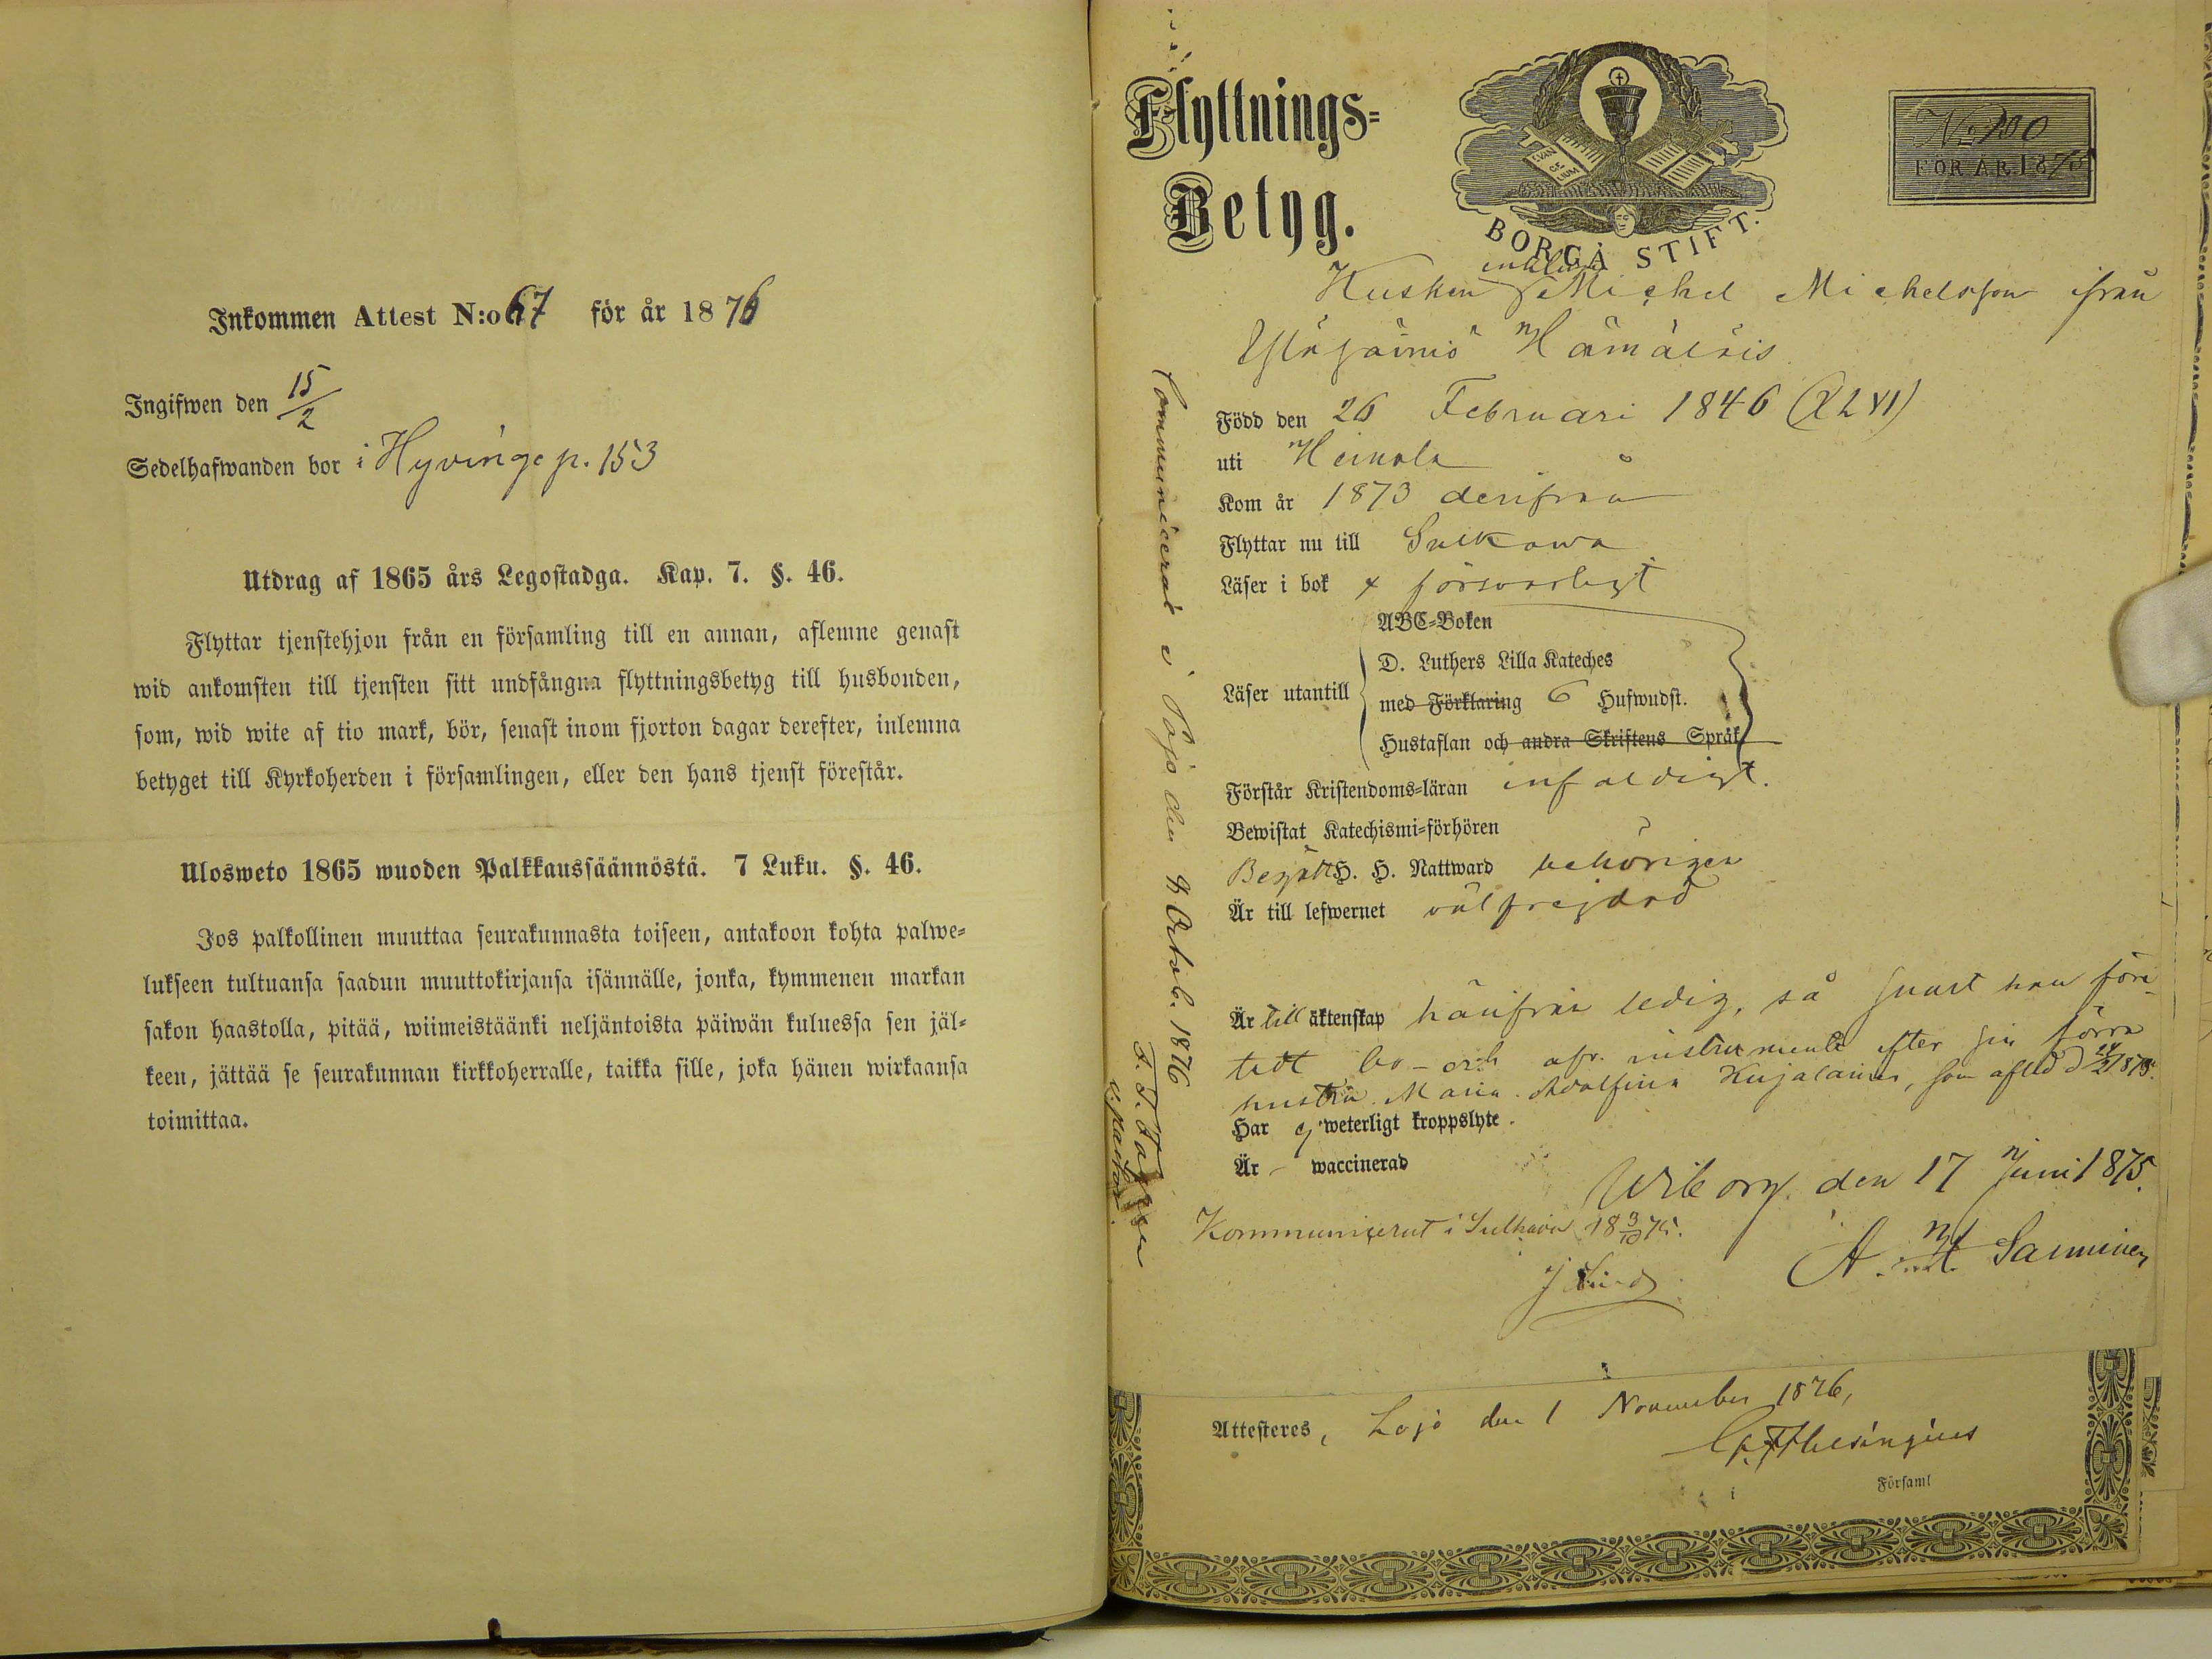 Inkommen Attest N:o 67 för år 1876
Ingifwen den 15/2
Sedelhafwanden bor i Hyvinge p. 153
Utdrag af 1865 års Legostadga. Kap. 7. §. 46.
Flyttar tjenstehjon från en församling till en annan, aflemne genast
wid ankomsten till tjensten sitt undfångna flyttningsbetyg till husbonden,
som, wid wite af tio mark, bör, senast inom fjorton dagar derefter, inlemna
betyget till Kyrkoherden i församlingen, eller den hans tjenst förestår.
Ulosweto 1865 wuoden Palkkaussäännöstä. 7 Luku. §. 46.
Jos palkollinen muuttaa seurakunnasta toiseen, antakoon kohta palwe-
lukseen tultuansa saadun muuttokirjansa isännälle, jonka, kymmenen markan
sakon haastolla, pitää, wiimeistäänki neljäntoista päiwän kuluessa sen jäl-
keen, jättää se seurakunnan kirkkoherralle, taikka sille, joka hänen wirkaansa
toimittaa.
Flyttnings-
Betyg.
EVAN GE LIUM
BORGÅ STIFT.
No 100
FÖR ÅR 1875
enklingen
Kusken Michel Michelsson ifrån
Född den 26 Februari 1846 (XLVI)
uti Heinola
Kom år 1873 derifrån
Flyttar nu till Sulkawa
Läser i bok försvarligt
ABC-Boken
D. Luthers Lilla Kateches
Läser utantill
med Förklaring 6 Hufwudst.
Hustaflan och andra Skriftens Språk
Förstår Kristendoms-läran enfaldigt.
Bewistat Katechismi-förhören
Begått H. H. Nattward behörigen
Är till lefwernet välfrejdad
Är till äktenskap härifrån ledig, så snart han före-
tett bo- och afv. instrument efter sin förra
hustru Maria Adolfina Kujalainen, som afled d 1875.
Har ej weterligt kroppslyte.
Är waccinerad
Wiborg den 17 Juni 1875.
Kommunicerat i Sulkava 18 3/10 75.
J Lind
A. M. Sarminen
Communicerat i Lojo den 8 Octob. 1876
v. pastor.
Attesteres, Lojo den 1 November 1876,
i Församl